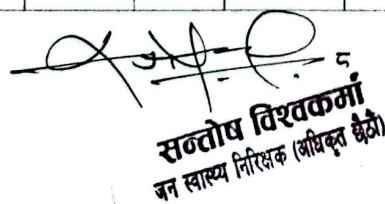 सन्तोष विश्वकर्मा
जन स्वास्थ्य निरिक्षक (अधिकृत छैठौं)